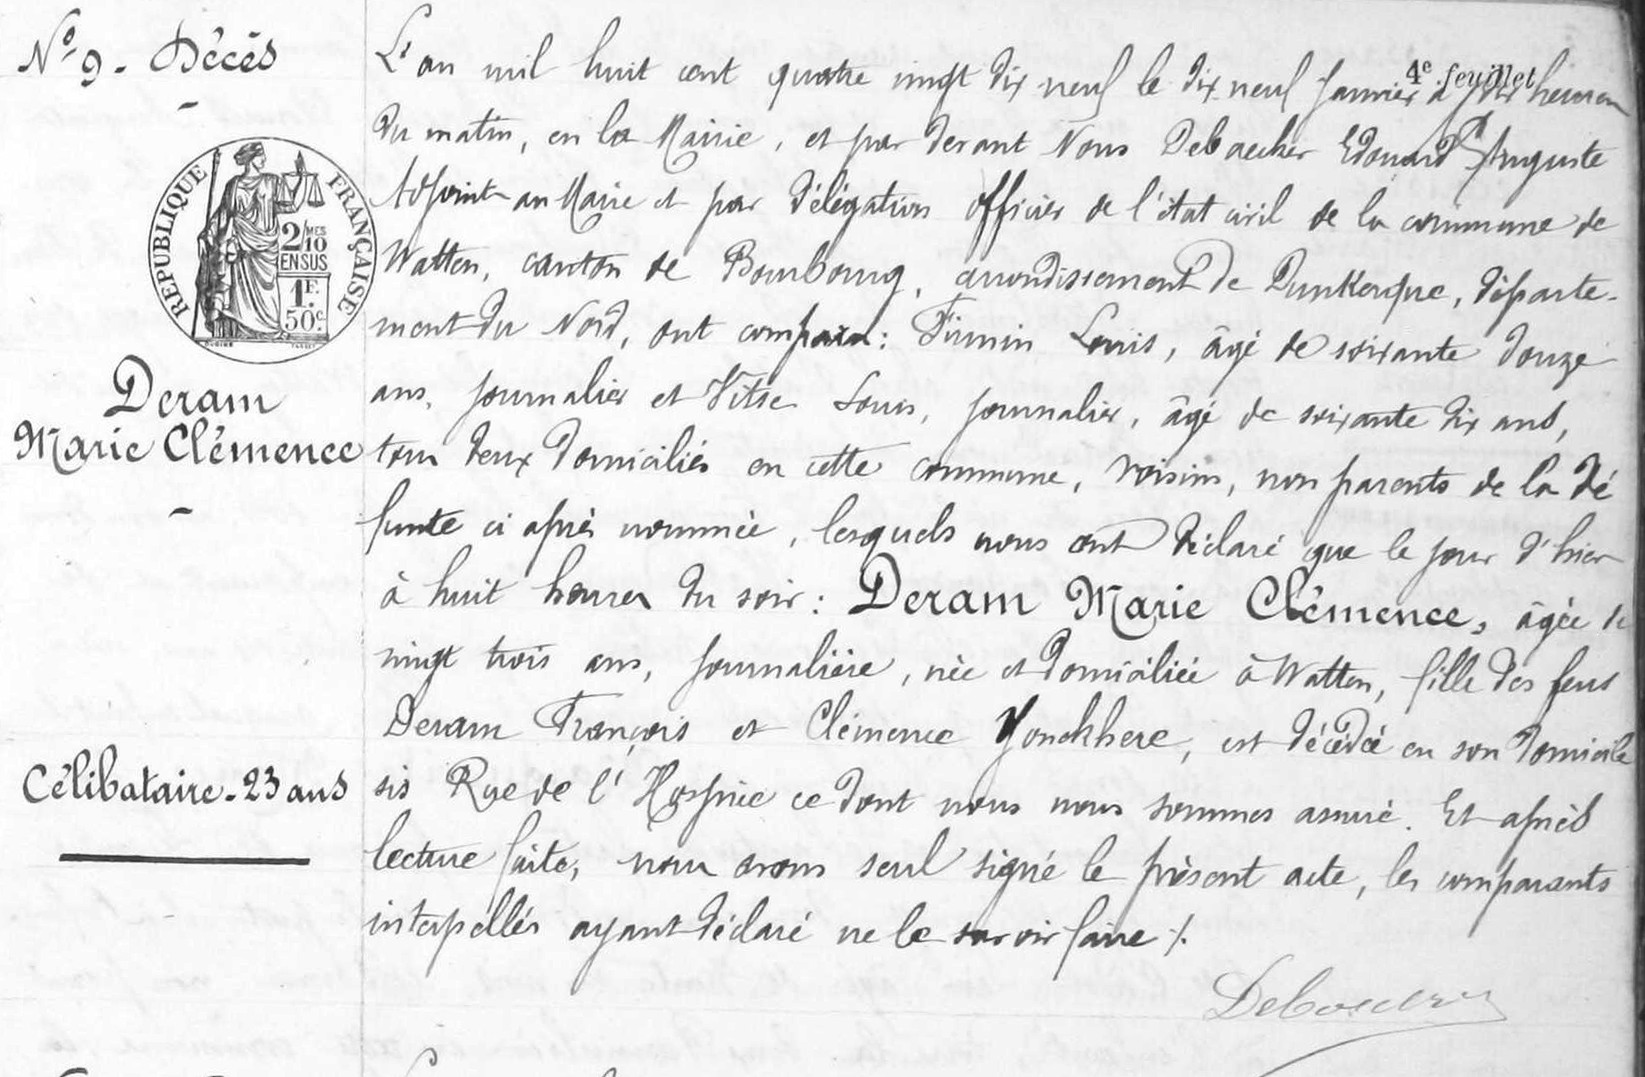 N° 9. Décès
RÉPUBLIQUE FRANÇAISE
2/10 MES
EN SUS
1F.
50c.
Deram
Marie Clémence
Célibataire. 23 ans
4e feuillet
L'an mil huit cent quatre vingt dix neuf le dix neuf Janvier à heures
du matin, en la Mairie, et par devant Nous Debaecker Edouard Auguste
Adjoint au Maire et par délégation officier de l'état civil de la commune de
Watten, canton de Bourbourg, arrondissement de Dunkerque, départe-
ment du Nord, ont comparu: Firmin Louis, âgé de soixante douze
ans, journalier et Vitse Louis, journalier, âgé de soixante dix ans,
tous deux domiciliés en cette commune, voisins, non parents de la dé
funte ci après nommée, lesquels nous ont déclaré que le jour d'hier
à huit heures du soir: Deram Marie Clémence, âgée de
vingt trois ans, journalière, née et domiciliée à Watten, fille des feus
Deram François et Clémence Yonckhere, est décédée en son domicile
sis Rue de l'Hospice ce dont nous nous sommes assuré. Et après
lecture faite, nous avons seul signé le présent acte, les comparants
interpellés ayant déclaré ne le savoir faire ./.
Debaecker